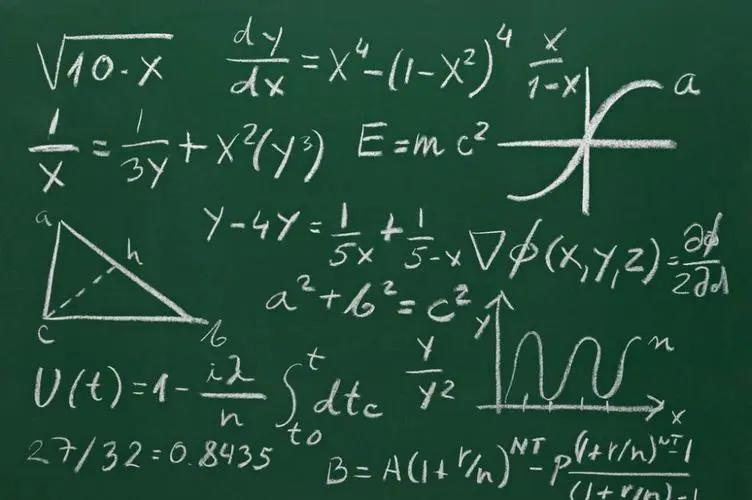 √10·x
dy/dx = x⁴-(1-x²)⁴
x/1-x
a
1/x = 1/3y + x²(y³)
E=mc²
y-4y = 1/5x + 1/5-x
∇ϕ(x,y,z) = ∂ϕ/2∂d
a
h
c
b
a²+b²=c²
y
n
x
U(t)=1-iλ/n ∫ₜ₀ᵗ dtc
y/y²
27/32=0.8435
B=A(1+r/n)ᴺᵀ-p(1+r/n)ᴺᵀ-1/(1+r/n)-1